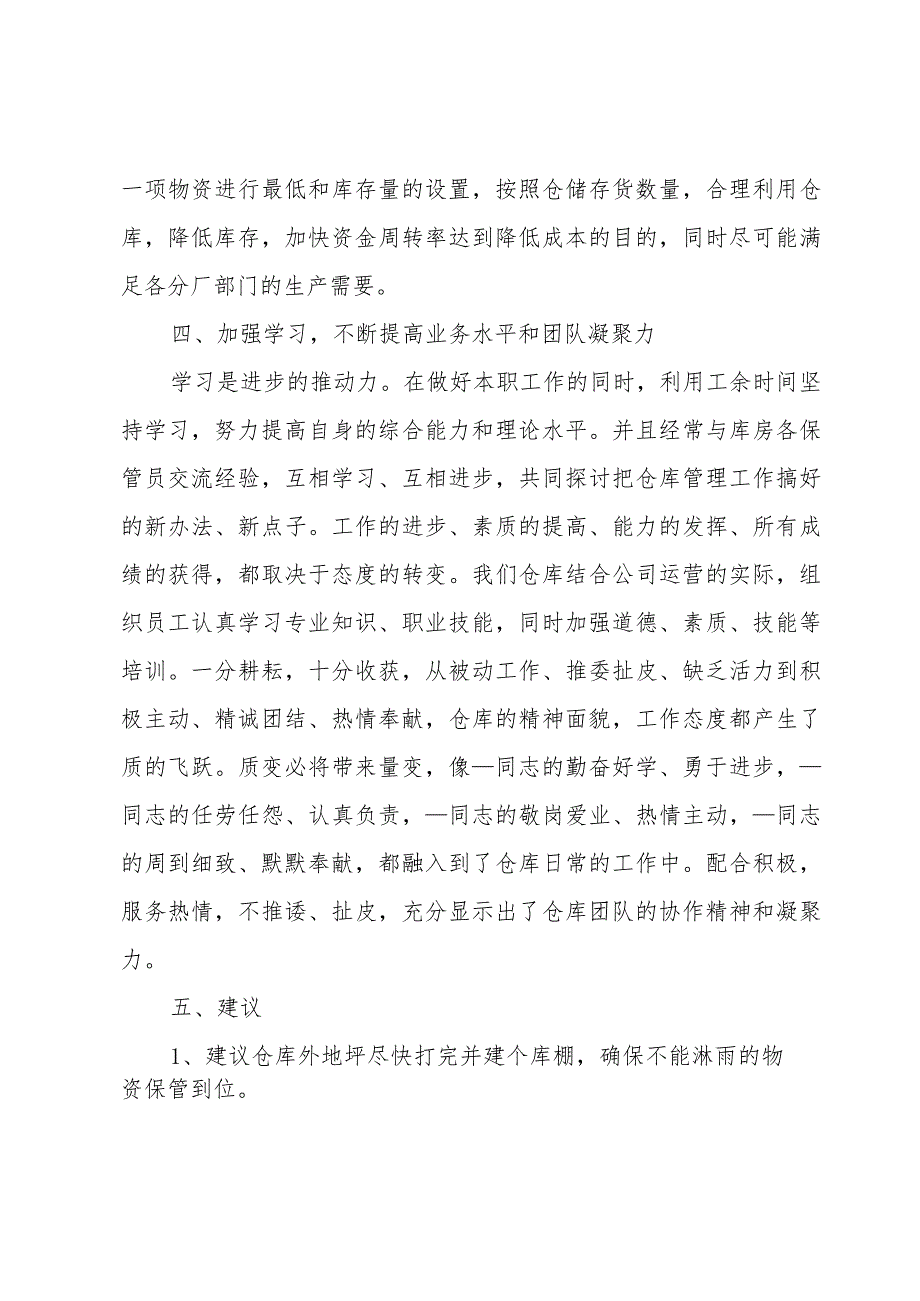 一项物资进行最低和库存量的设置，按照仓储存货数量，合理利用仓
库，降低库存，加快资金周转率达到降低成本的目的，同时尽可能满
足各分厂部门的生产需要。
四、加强学习，不断提高业务水平和团队凝聚力
学习是进步的推动力。在做好本职工作的同时，利用工余时间坚
持学习，努力提高自身的综合能力和理论水平。并且经常与库房各保
管员交流经验，互相学习、互相进步，共同探讨把仓库管理工作搞好
的新办法、新点子。工作的进步、素质的提高、能力的发挥、所有成
绩的获得，都取决于态度的转变。我们仓库结合公司运营的实际，组
织员工认真学习专业知识、职业技能，同时加强道德、素质、技能等
培训。一分耕耘，十分收获，从被动工作、推委扯皮、缺乏活力到积
极主动、精诚团结、热情奉献，仓库的精神面貌，工作态度都产生了
质的飞跃。质变必将带来量变，像—同志的勤奋好学、勇于进步，—
同志的任劳任怨、认真负责，—同志的敬岗爱业、热情主动，—同志
的周到细致、默默奉献，都融入到了仓库日常的工作中。配合积极，
服务热情，不推诿、扯皮，充分显示出了仓库团队的协作精神和凝聚
力。
五、建议
1、建议仓库外地坪尽快打完并建个库棚，确保不能淋雨的物
资保管到位。